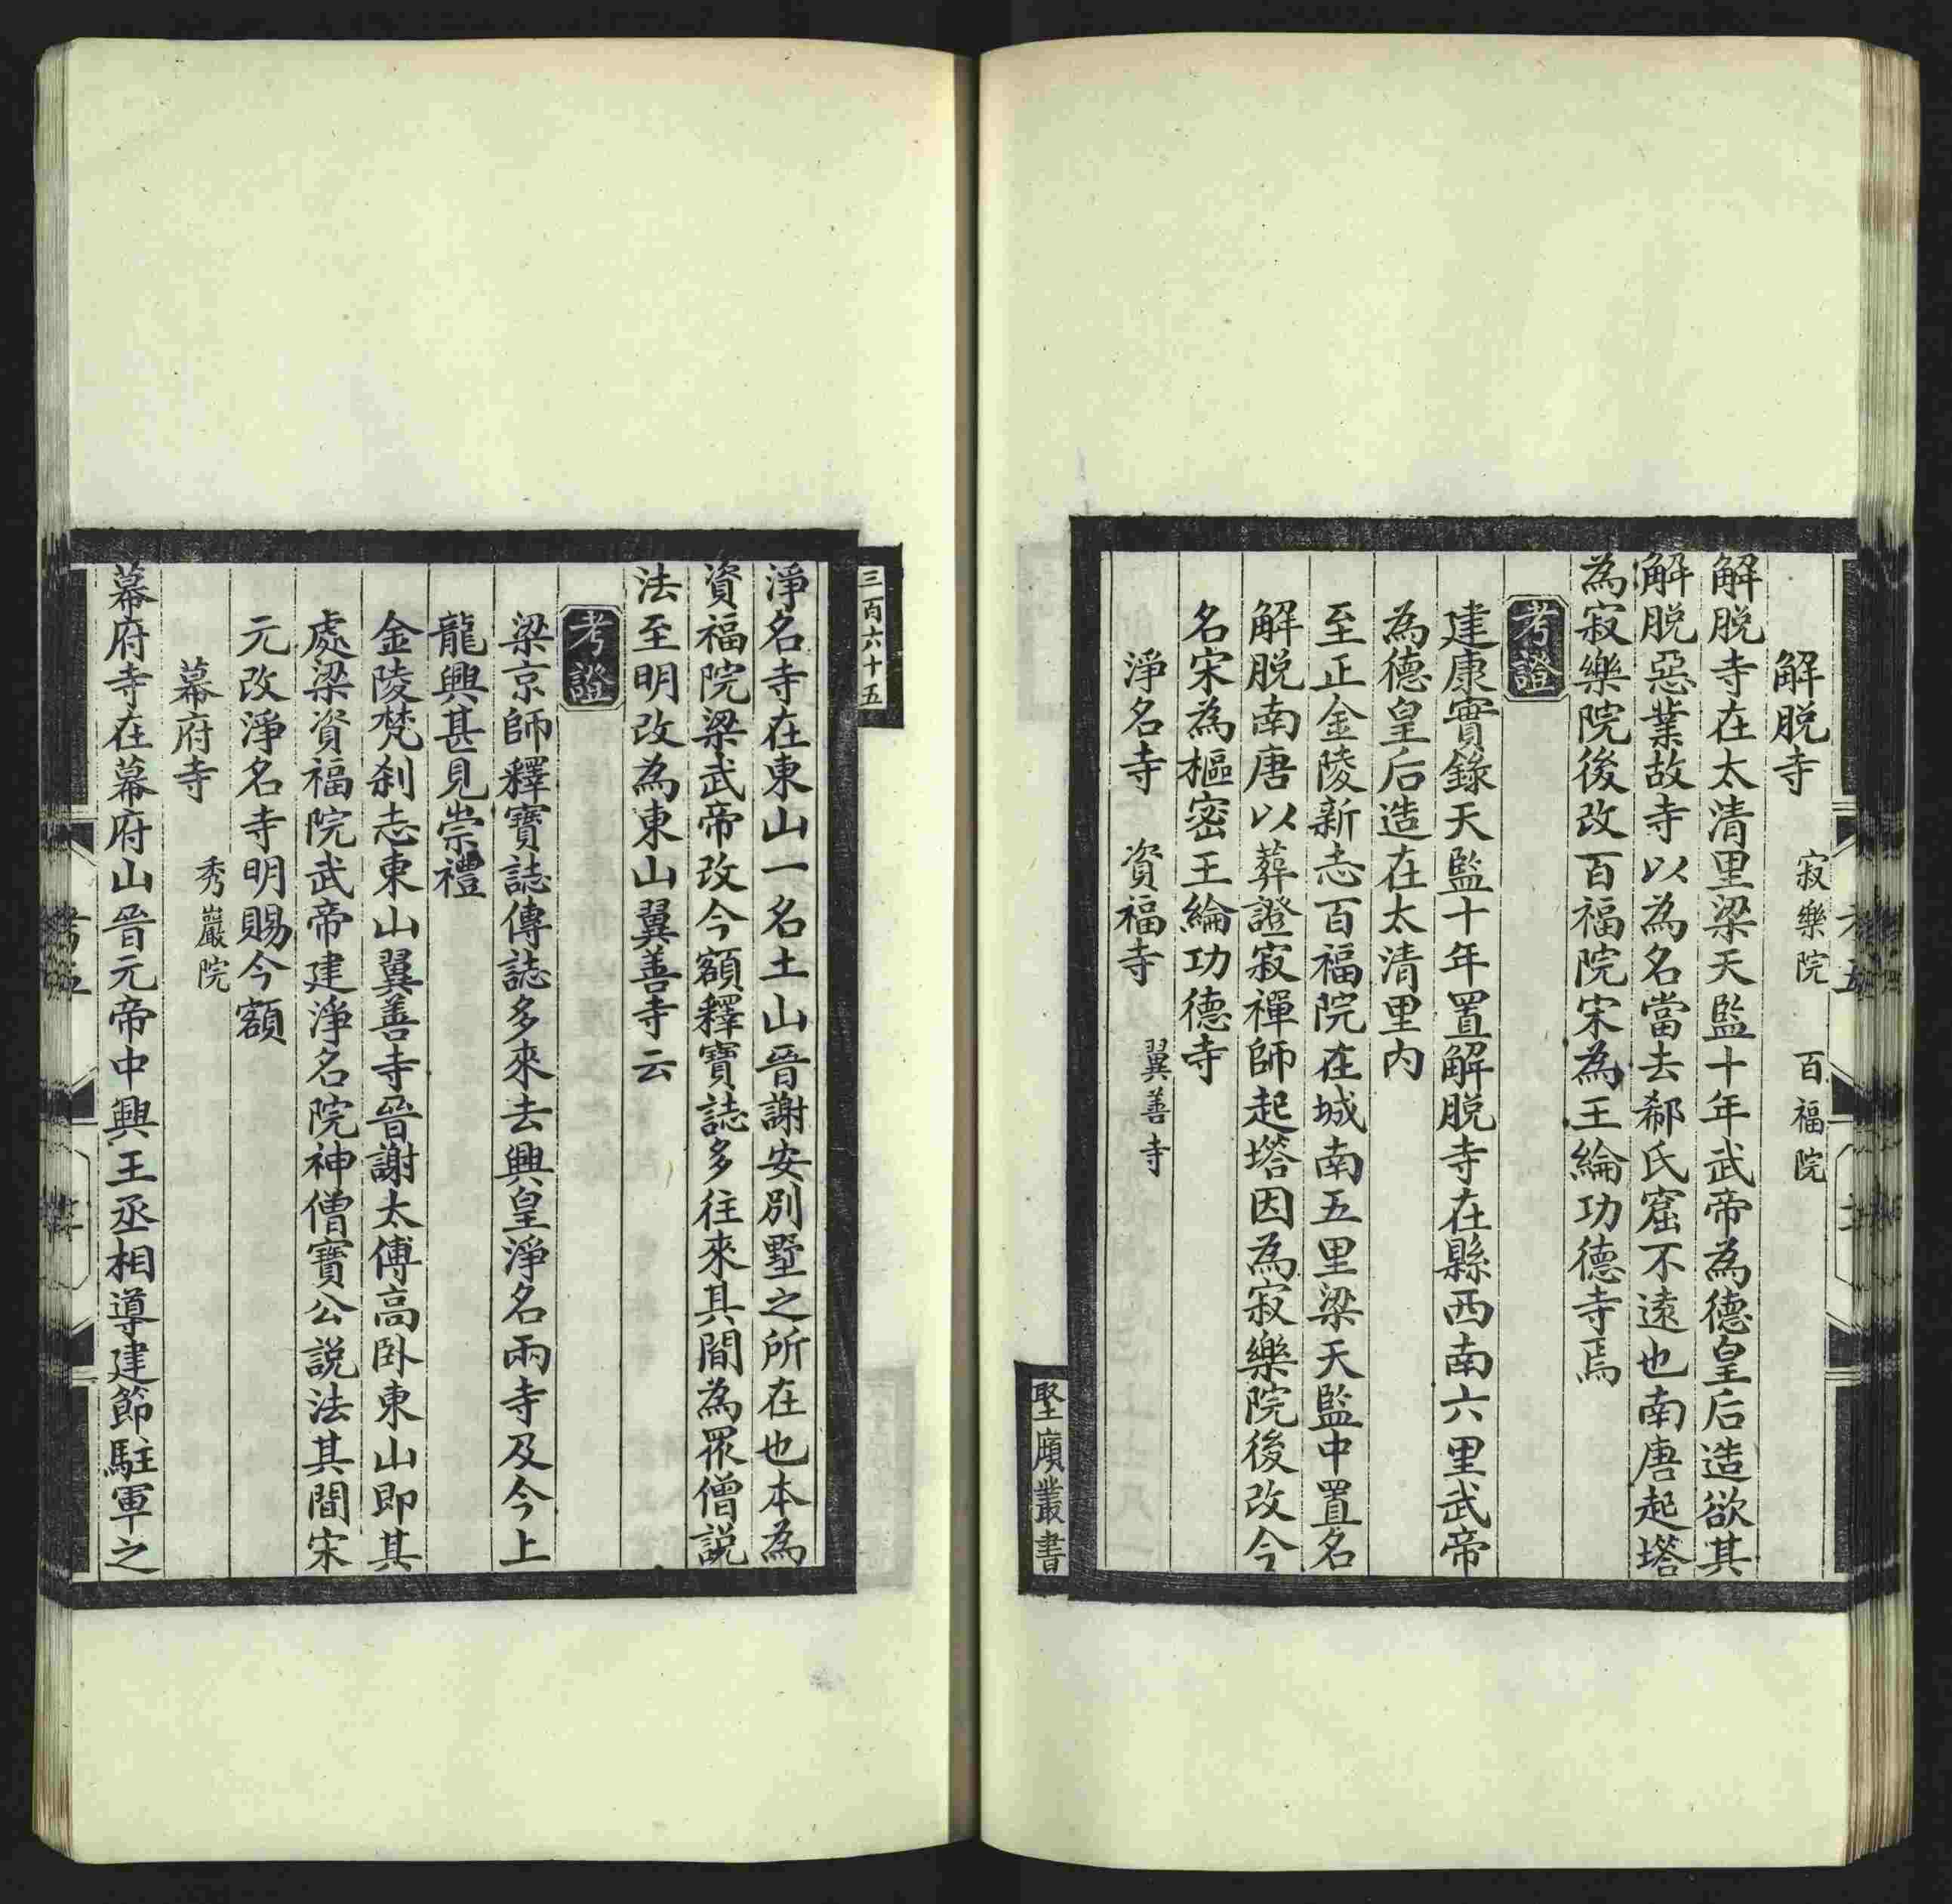 解脱寺 寂樂院 百福院
解脱寺在太清里梁天監十年武帝為德皇后造欲其
解脱惡業故寺以為名當去郗氏窟不遠也南唐起塔
為寂樂院後改百福院宋為王綸功德寺焉
考證
建康實錄天監十年置解脱寺在縣西南六里武帝
為德皇后造在太清里内
至正金陵新志百福院在城南五里梁天監中置名
解脱南唐以葬證寂禪師起塔因為寂樂院後改今
名宋為樞密王綸功德寺
淨名寺 資福寺 翼善寺
堅匏叢書
三百六十五
淨名寺在東山一名土山晉謝安別墅之所在也本為
資福院梁武帝改今額釋寶誌多往來其間為眾僧説
法至明改為東山翼善寺云
考證
梁京師釋寶誌傳誌多來去興皇淨名兩寺及今上
龍興甚見崇禮
金陵梵刹志東山翼善寺晉謝太傅高卧東山即其
處梁資福院武帝建淨名院神僧寶公説法其間宋
元改淨名寺明賜今額
幕府寺 秀巖院
幕府寺在幕府山晉元帝中興王丞相導建節駐軍之